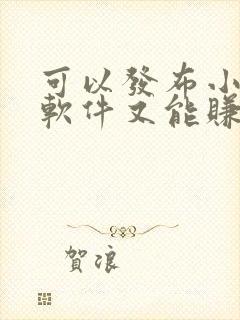 可以發布小
軟件又能賺
賀浪